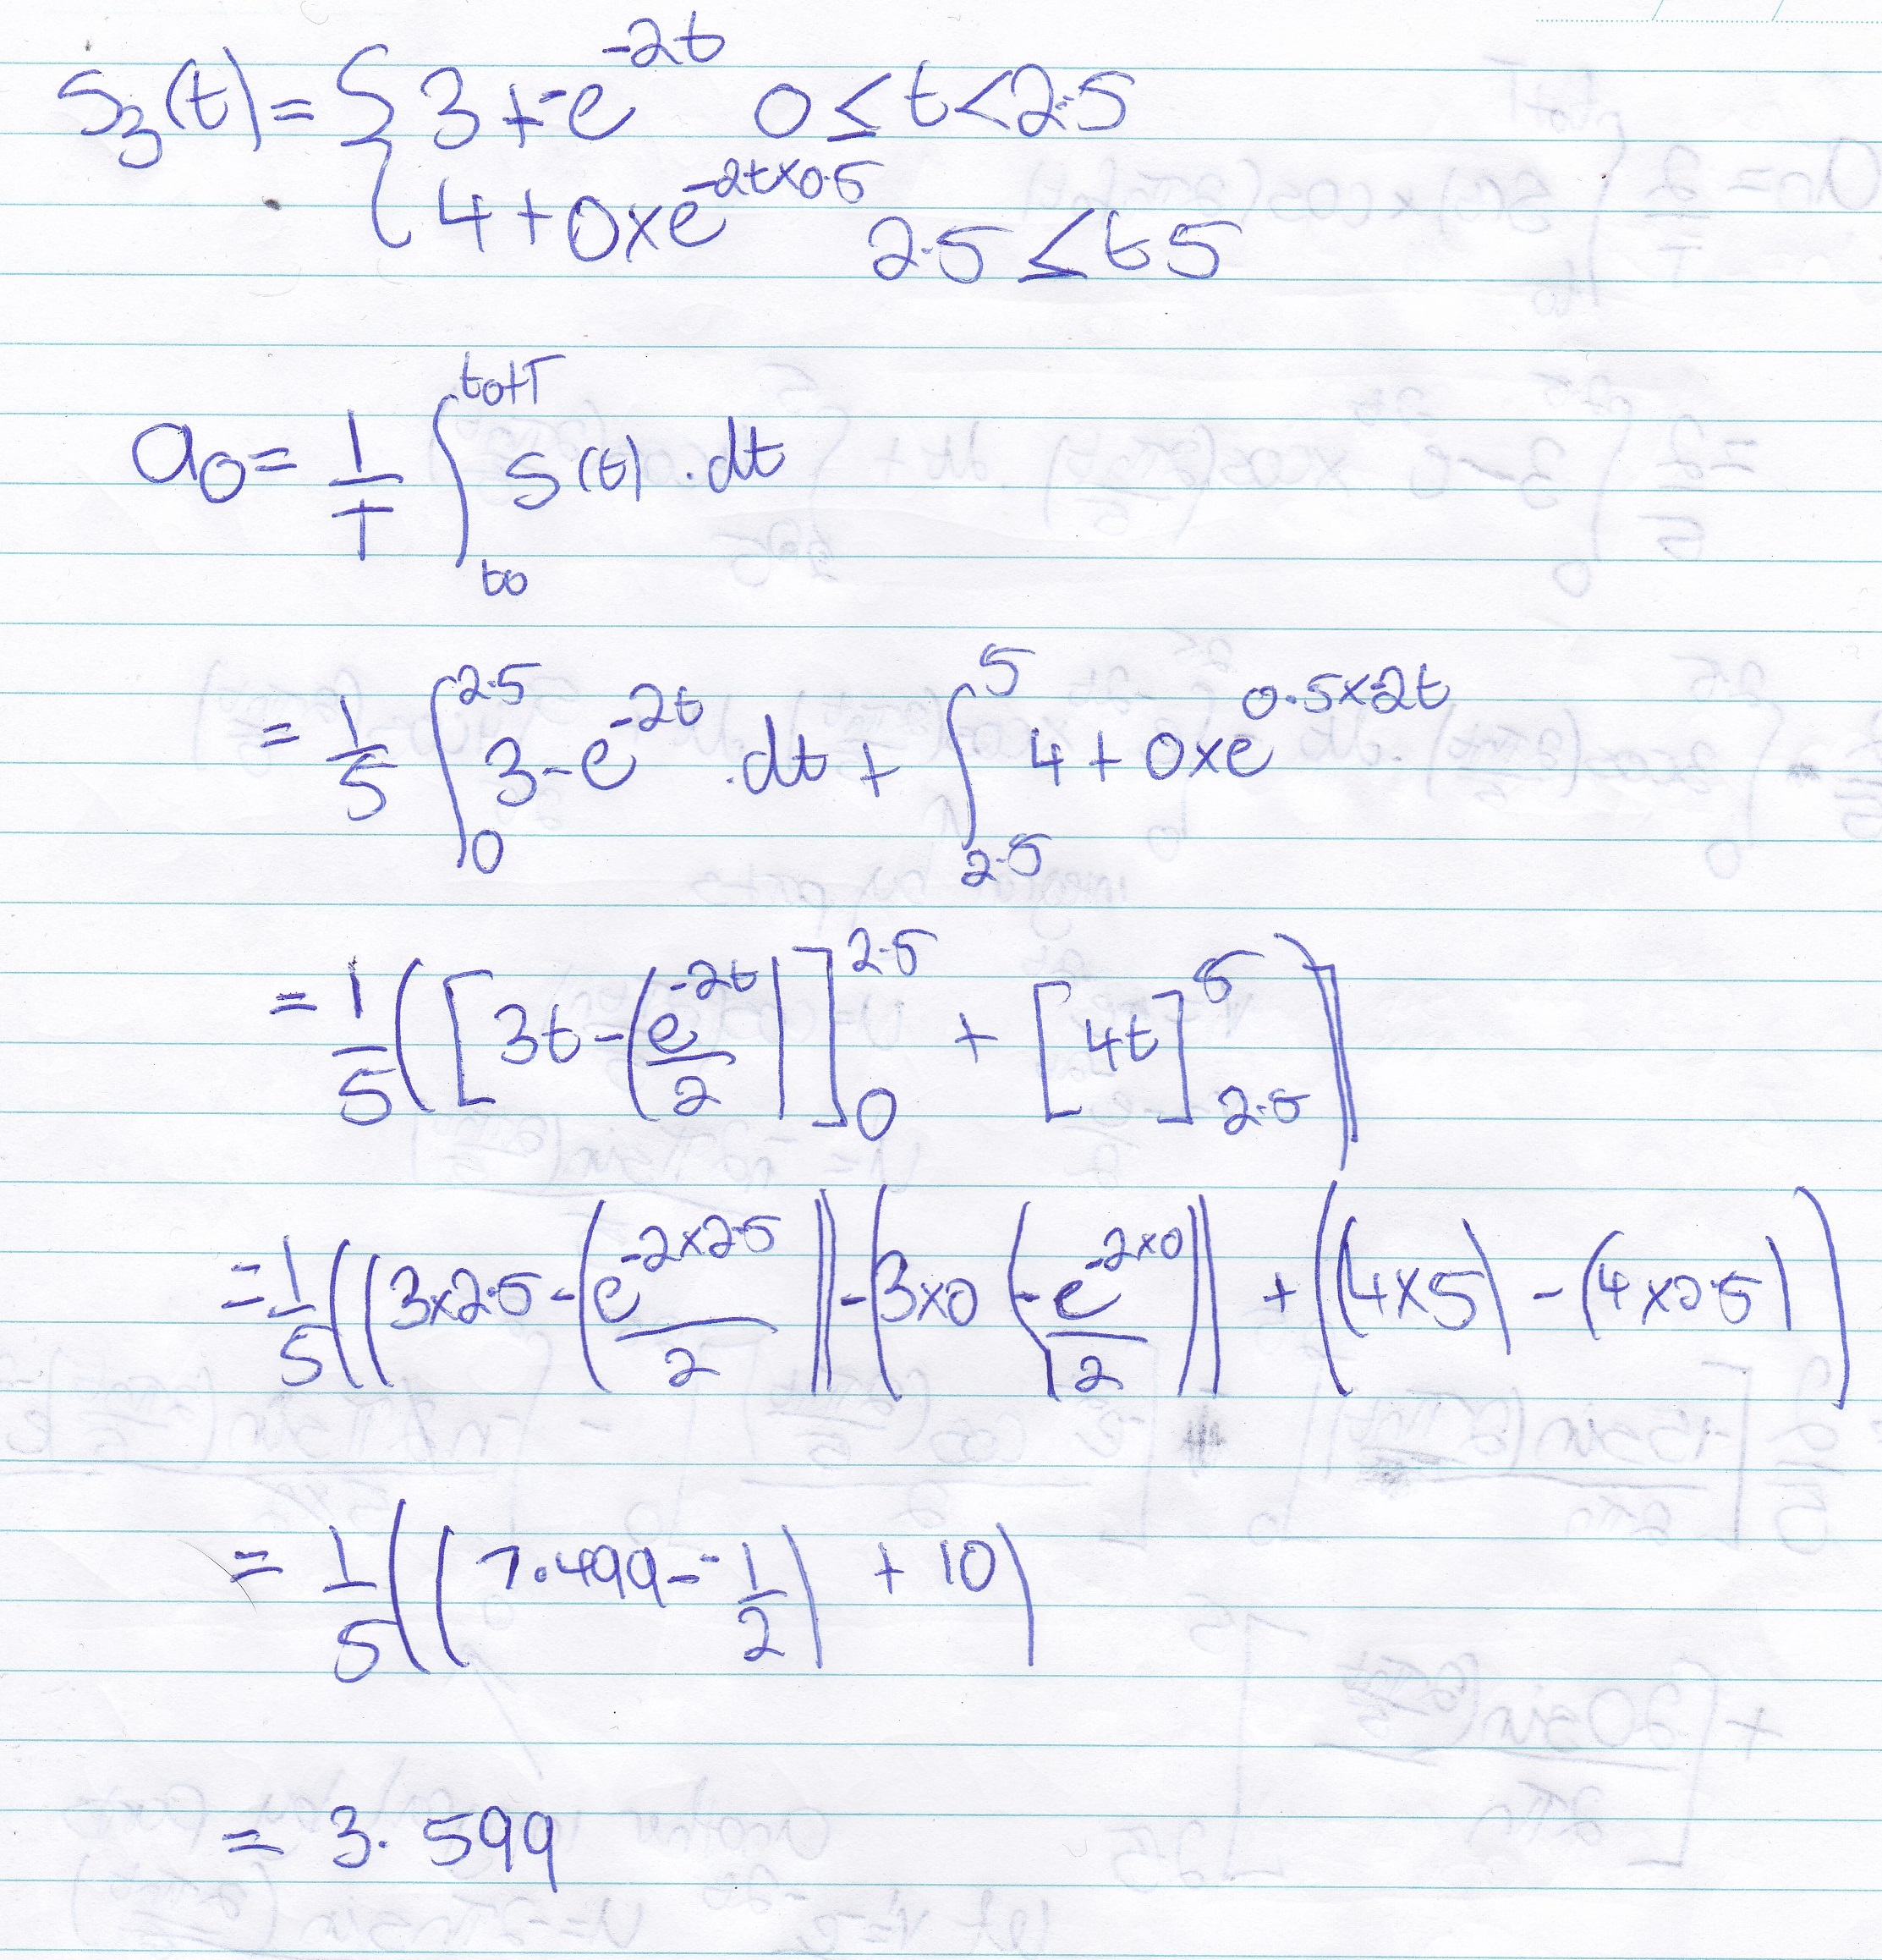 S₃(t) = { 3 + -e^-2t 0 ≤ t < 2.5
4 + 0xe^-2t×0.5 2.5 ≤ t 5
a₀ = 1/T ∫_t₀^t₀+T S(t) . dt
= 1/5 ∫_0^2.5 3 - e^-2t . dt + ∫_2.5^5 4 + 0xe^0.5×-2t
= 1/5 ( [ 3t - ( e^-2t / 2 ) ]_0^2.5 + [ 4t ]_2.5^5 )
= 1/5 ( ( 3×2.5 - ( e^-2×2.5 / 2 ) ) - ( 3×0 ( - e^-2×0 / 2 ) ) + ( (4×5) - (4×2.5) ) )
= 1/5 ( ( 7.499 - - 1/2 ) + 10 )
= 3.599